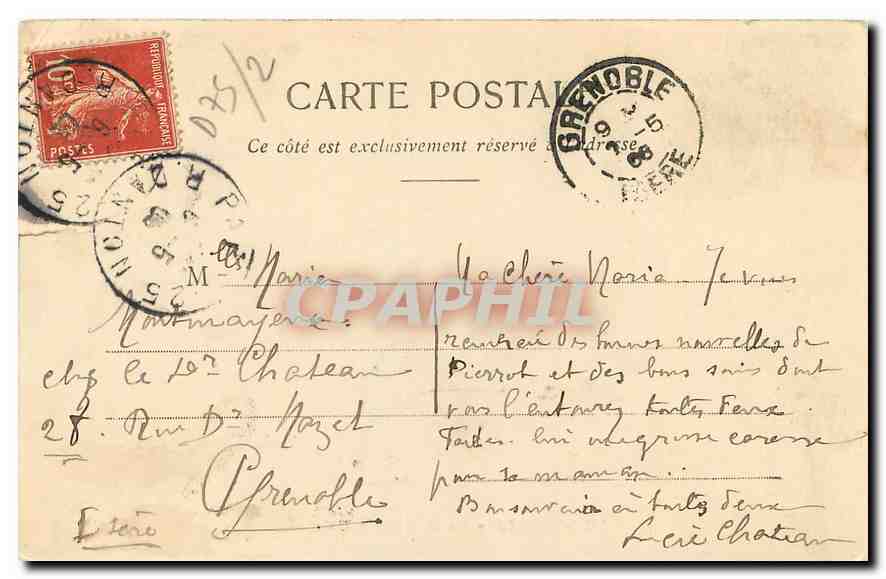 10c
REPUBLIQUE FRANÇAISE
POSTES
D75/2
CARTE POSTALE
Ce côté est exclusivement réservé à l'adresse
GRENOBLE
ISERE
PARIS
R. DANTON
25
Mlles Marie
Montmayeur
chez le Dr Chateau
28. Rue Dr Mazet
Grenoble
Isère
Ma Chère Maria - Je vous
remercie des bonnes nouvelles de
Pierrot et des bons soins dont
vous l'entourez toutes deux.
Faites lui une grosse caresse
pour sa maman..
Bonsouvenir à toutes deux
Lucie Chateau
CPAPHIL